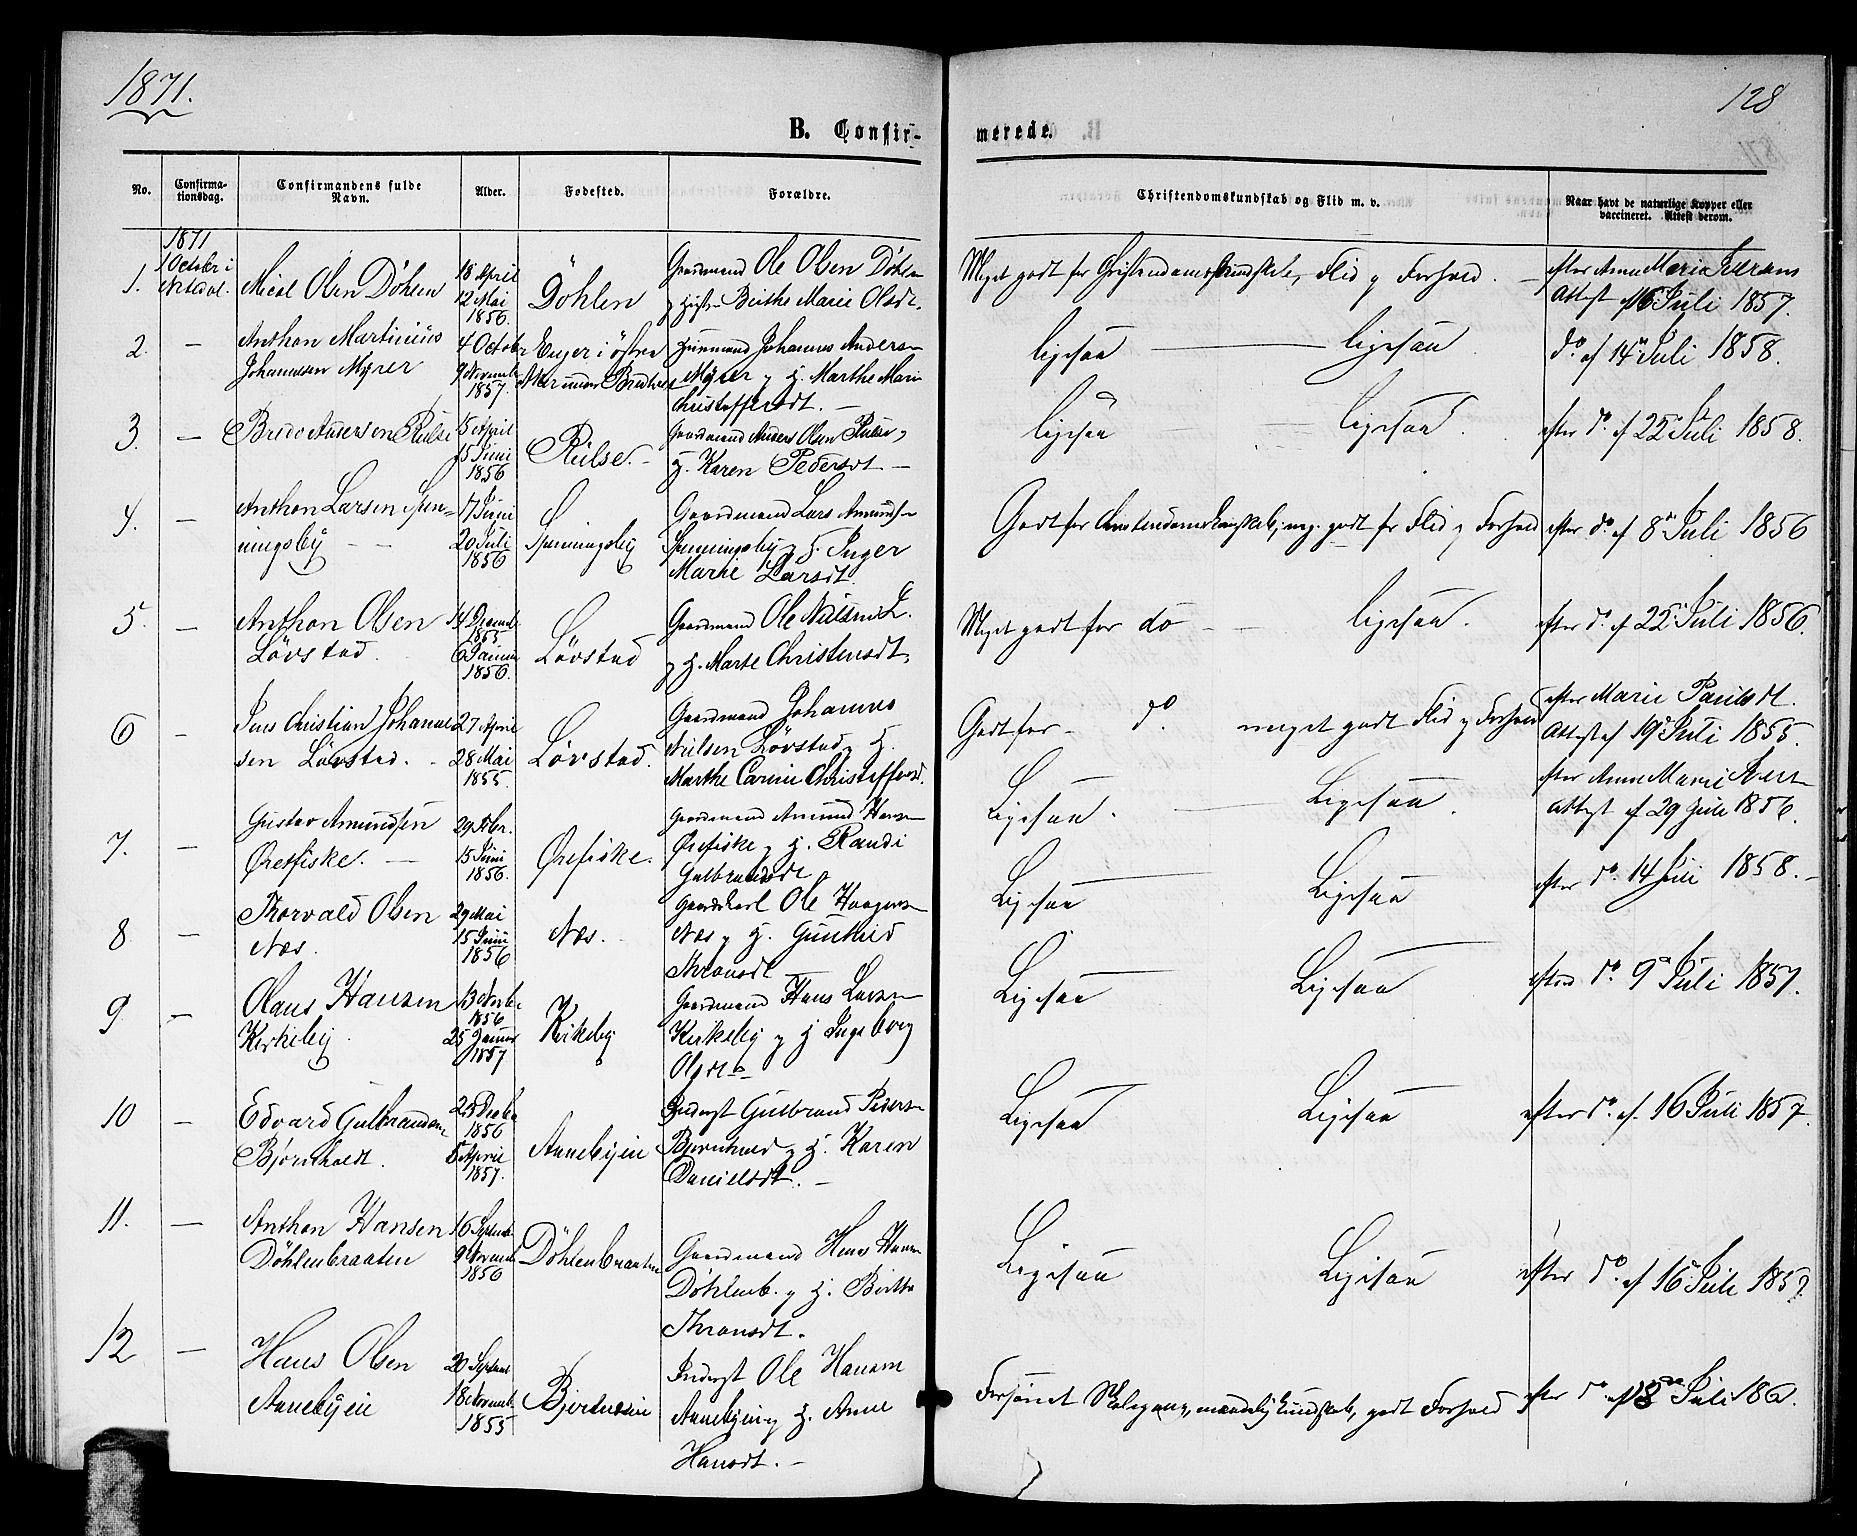 1871.
128
B. Confir-
merede.
No.
Confirma-
tionsdag.
Confirmandens fulde
Navn.
Alder.
Fødested.
Forældre.
Christendomskundskab og Flid m. v.
Naar havt de naturlige Kopper eller
vaccineret. Attest derom.
1871
1 Octobr i
Nitedal.
1.
Olsen Döhlen
18 April
12 Mai
1856.
Döhlen
Gaardmand Ole Olsen Döhlen
og Hustru Berthe Marie Olsdt.
Meget godt for Christendomskundskab, Flid og Forhold.
efter Anne Marie
Attest af 16 Juli 1857.
2.
Anthon Martinius
Johannesen Myrer
4 Octobr
9 Novemb
1857.
Enger i östre
Aker
Huusmand Johannes Andersen
Myrer og H. Marthe Marie
Christoffersdt.
ligesaa
ligesaa
do af 14 Juli 1858.
3.
Brede Andersen Rulse
5 April
15 Juni
1856
Rulse.
Gaardmand Anders Olsen Rulse og
H. Karen Pedersdt
ligesaa
ligesaa
efter do af 22 Juli 1858.
4.
Anthon Larsen Spen-
ningsby
17 Juni
20 Juli
1856
Spenningsby
Gaardmand Lars Amundsen
Spenningsby og H. Inger
Marie Larsdt.
Godt for Christendomskundskab, meg. godt for Flid og Forhold
efter do af 8 Juli 1856
5.
Anthon Olsen
Lövstad.
14 Decemb
1855
6 Januar
1856.
Lövstad
Gaardmand Ole Nilsen L.
og H. Marte Christensdt.
Meget godt for do
ligesaa.
efter do af 22 Juli 1856.
6
Jens Christian Johanne-
sen Lövstad.
27 April
28 Mai
1855.
Lövstad.
Gaardmand Johannes
Nilsen Lövstad og H.
Marthe Carine Christoffersdt.
Godt for do.
meget godt Flid og Forhold
efter Marie Paulsdt.
Attest af 19 Juli 1855.
7.
Gustav Amundsen
Ørefiske.
29 Febr.
15 Juni
1856.
Ørefiske.
Gaardmand Amund Hansen
Ørefiske og H. Randi
Gulbrandsdt.
Ligesaa.
Ligesaa.
efter Anne Marie
Attest af 29 Juli 1856.
8
Thorvald Olsen
Næs.
29 Mai
15 Juni
1856
Næs.
Gaardkarl Ole Haagensen
Næs og H. Gunhild
Thronsdt
Ligesaa
Ligesaa
efter do. 14 Juli 1858.
9
Olaus Hansen
Kirkeby.
13 Novbr
1856
25 Januar
1857
Kirkeby
Gaardmand Hans Larsen
Kirkeby og H Ingeborg
Olsdt
Ligesaa
Ligesaa
efter do 9 Juli 1857.
10
Edvard Gulbrandsen
Bjørnholdt.
25 Decbr
1856
5 April
1857.
Annebyeie
Inderst Gulbrand Pedersen
Bjørnhold og H. Karen
Danielsdt.
Ligesaa
Ligesaa
efter do. af 16 Juli 1857.
11.
Anthon Hansen
Döhlenbraaten
16 Septemb
9 Novemb
1856
Döhlenbraaten
Gaardmand Hans Hansen
Döhlenb. og H. Birthe
Thronsdt.
Ligesaa
Ligesaa
efter do. af 16 Juli 1857
12
Hans Olsen
Annebyeie
20 Septemb
18 Novemb
1855
Inderst Ole Hansen
Annebyeie og H. Anne
Hansdt.
Forsömt Skolegang, maadelig Kundskab, godt Forhold
efter do af 18 Juli